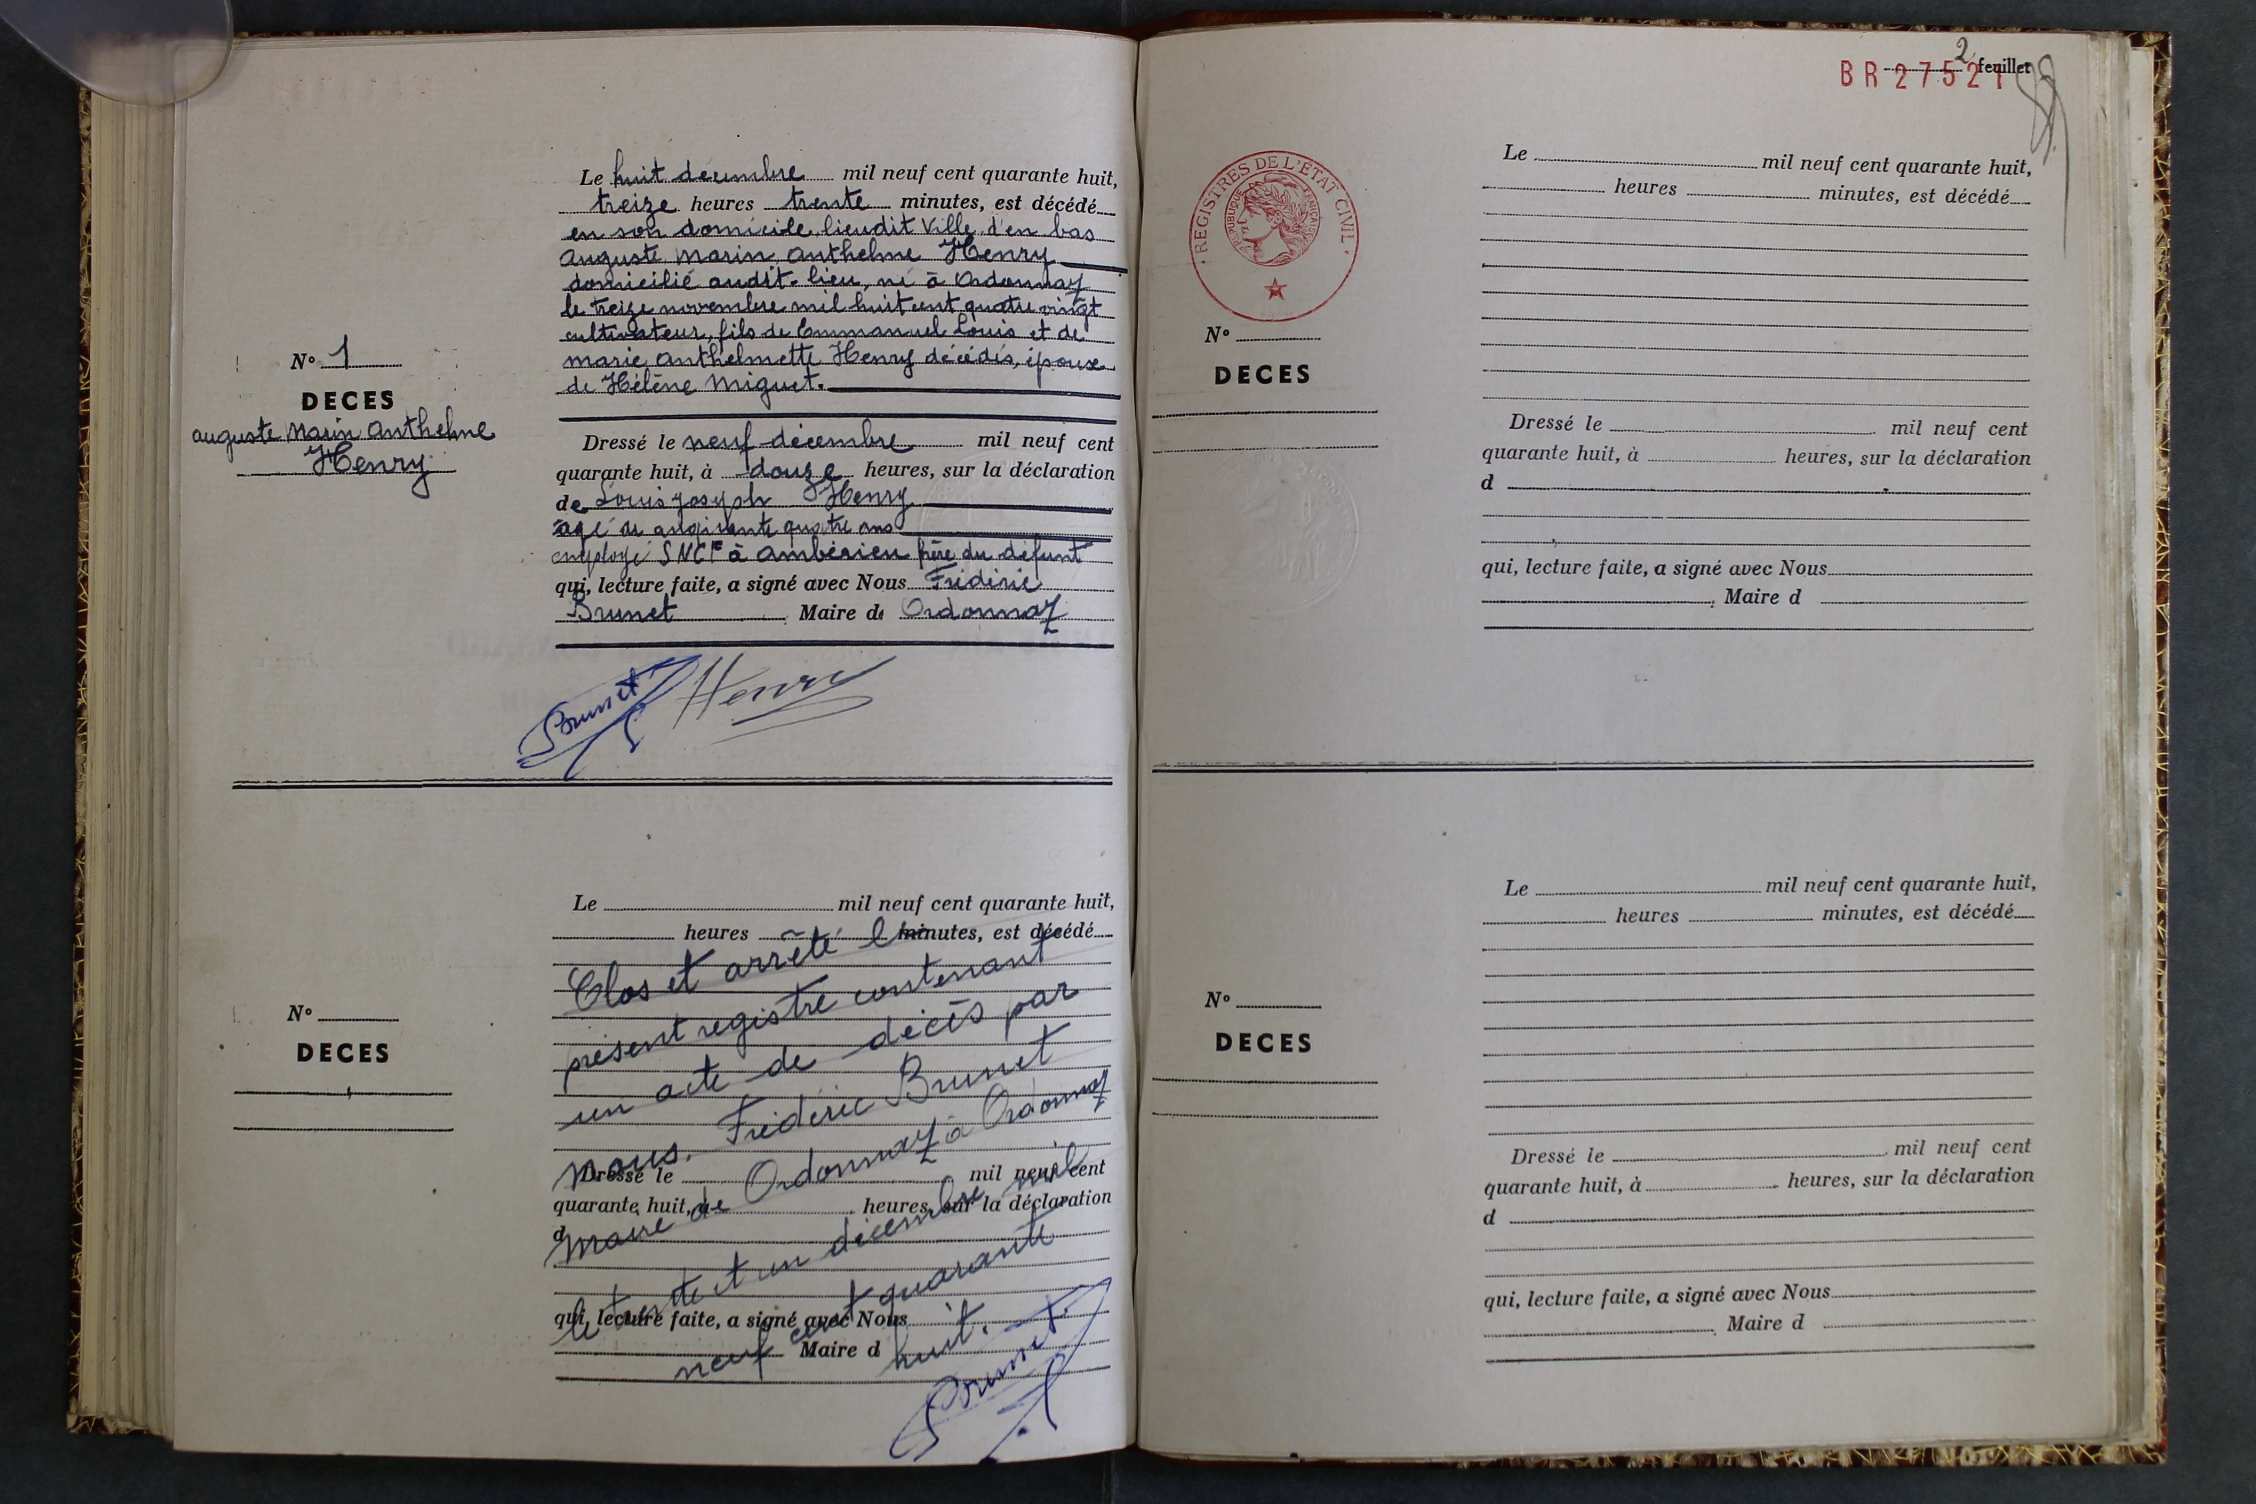 Le huit décembre mil neuf cent quarante huit,
treize heures trente minutes, est décédé
en son domicile, lieudit Ville d'en bas
Auguste Marin Anthelme Henry
domicilié audit lieu, né à Ordonnaz
le treize novembre mil huit cent quatre vingt
cultivateur, fils de Emmanuel Louis et de
marie anthelmette Henry décédés, époux
de Hélène Miguet.
N° 1
DECES
auguste Marin Anthelme
Henry
Dressé le neuf décembre mil neuf cent
quarante huit, à douze heures, sur la déclaration
de Louis Joseph Henry
âgé de quatre ans
employé SNCF à Ambérieu frère du défunt
qui, lecture faite, a signé avec Nous Frédéric
Brunet Maire de Ordonnaz
Brunet Henry
Le mil neuf cent quarante huit,
heures minutes, est décédé
N°
DECES
Dressé le mil neuf cent
quarante huit, à heures, sur la déclaration
d
qui, lecture faite, a signé avec Nous
Maire d
Clos et arrêté le
présent registre contenant
un acte de décès par
nous, Frédéric Brunet
Maire de Ordonnaz à Ordonnaz
le trente et un décembre mil
neuf cent quarante
huit.
Brunet
2 feuillet
BR 27521
REGISTRES DE L'ÉTAT CIVIL
REPUBLIQUE FRANÇAISE
Le mil neuf cent quarante huit,
heures minutes, est décédé
N°
DECES
Dressé le mil neuf cent
quarante huit, à heures, sur la déclaration
d
qui, lecture faite, a signé avec Nous
Maire d
Le mil neuf cent quarante huit,
heures minutes, est décédé
N°
DECES
Dressé le mil neuf cent
quarante huit, à heures, sur la déclaration
d
qui, lecture faite, a signé avec Nous
Maire d